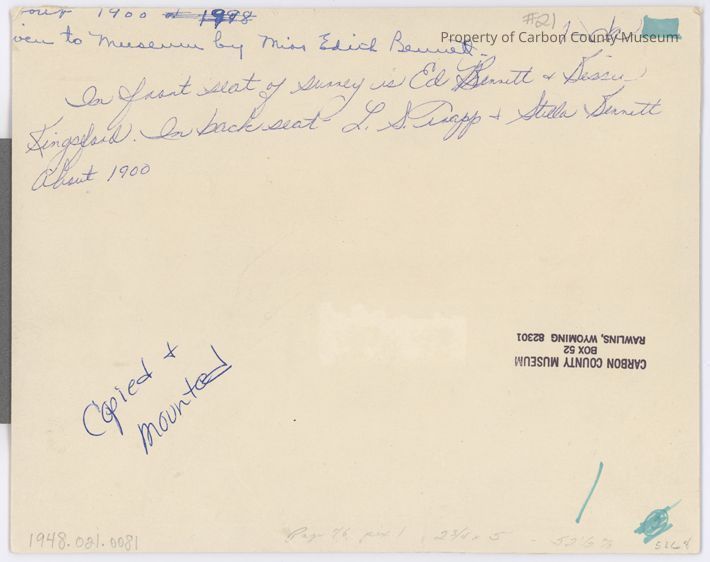 #21
1900 or 1998
Property of Carbon County Museum
to Museum by Miss Edith Bennett.
In front seat of surrey is Ed Bennett & Bessie
Kingsford. In back seat - L. S. Trapp & Stella Bennett
About 1900
CARBON COUNTY MUSEUM
BOX 52
RAWLINS, WYOMING 82301
Copied &
mounted
1948.021.0081
Page 76, pix 1 2 3/4 x 5
5268